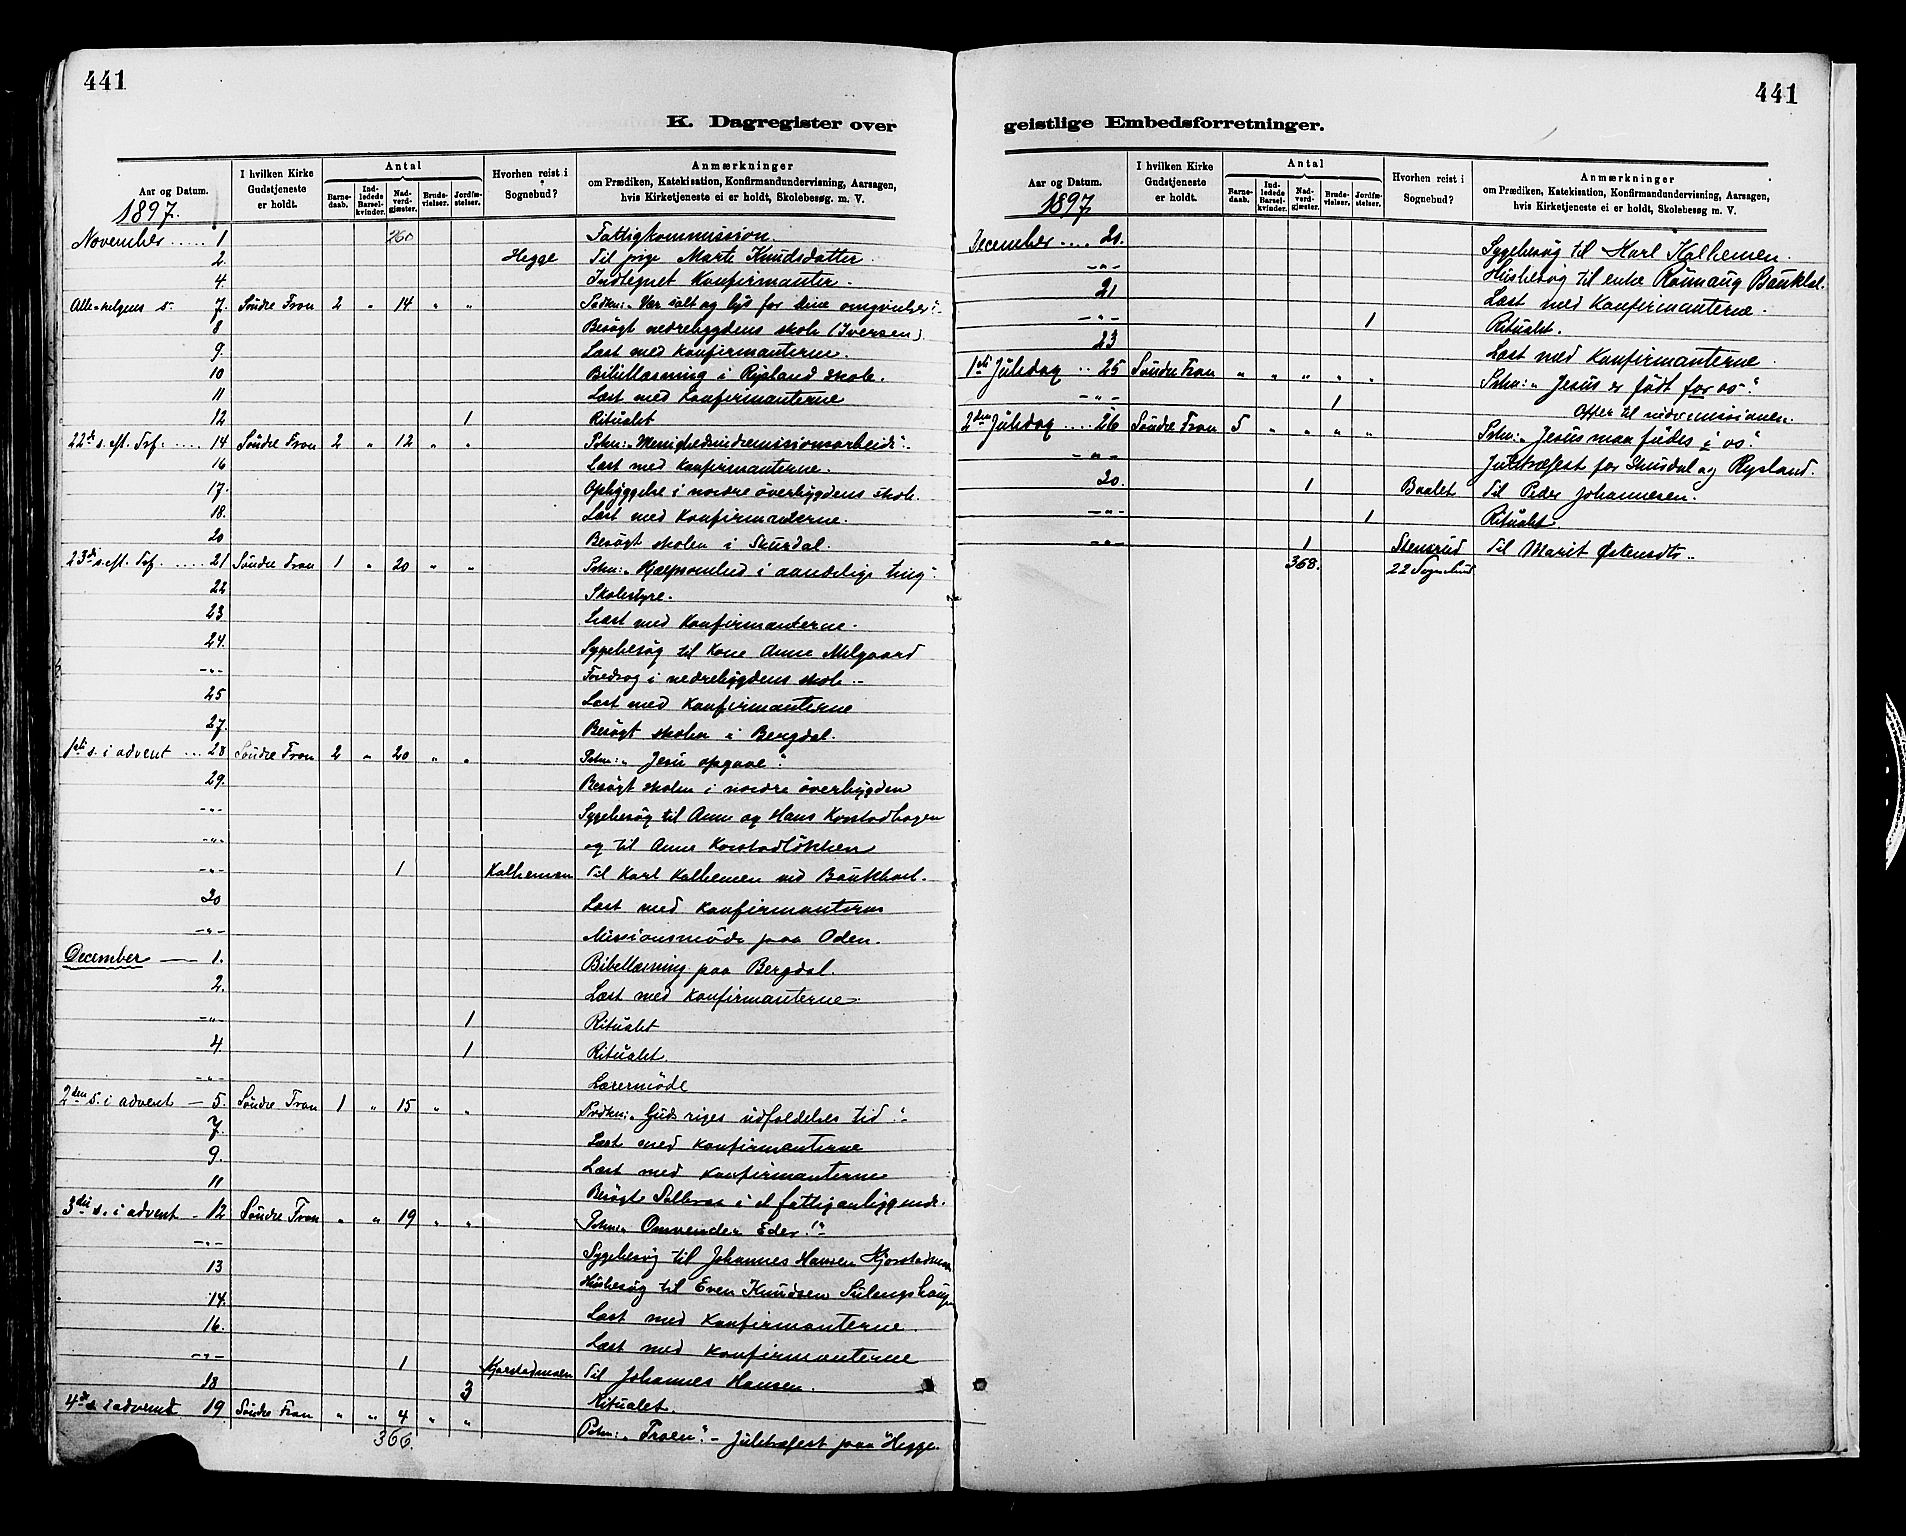 441
K. Dagregister over
Aar og Datum.
1897.
I hvilken Kirke Gudstjeneste er holdt.
Antal
Barnedaab.
Indledede Barselkvinder.
Nadverdgjæster.
Brudevielser.
Jordfæstelser.
Hvorhen reist i Sognebud?
Anmærkninger
om Prædiken, Katekisation, Konfirmandundervisning, Aarsagen,
hvis Kirketjeneste ei er holdt, Skolebesøg. m. V.
November ..... 1 260 Fattigkommission.
2. Hegge Til pige Marte Knudsdatter.
4. Indtegnet Konfirmanter.
Alle-helgens s. 7. Söndre Fron 2 " 14 " " Prdkn: "Vær salt og lys for dine omgivelser".
8 Besøgt nedrebygdens skole (Iversen).
9. Læst med Konfirmanterne.
10 Bibellæsning i Rysland skole.
11 Læst med Konfirmanterne
12 1 Ritualet
22de s. eft. Tref. .... 14 Söndre Fron 2 " 12 " " Prkn: "Menighedsindremissionsarbeide".
16 Læst med Konfirmanterne.
17. Opbyggelse i nordre överbygdens skole.
18. Læst med Konfirmanterne.
20 Besøgt skolen i Skurdal.
23de s. eft. Tref. ..... 21 Söndre Fron 1 " 20 " " Prkn: " i aandelige ting".
22 Skolestyre.
23 Læst med Konfirmanterne.
24. Sygebesög til Kone Anne Melgaard
-"- Foredrag i nedrebygdens skole.
25 Læst med Konfirmanterne
27. Besøgt skolen i Bergdal.
1ste s. i advent ... 28 Söndre Fron 2 " 20 " " Prkn: "Jesu opgave".
29. Besøgt skolen i nordre överbygden
-"- Sygebesög til Anne og Hans Korstadhagen
-"- og til Anne Korstadlökken
-"- 1 Kalhemen Til Karl Kalhemen ved Baukhol.
30 Læst med Konfirmanterne
-"- Missionsmöde paa Oden.
December — 1. Bibellæsning paa Bergdal.
2. Læst med Konfirmanterne.
-"- 1 Ritualet
4 1 Ritualet.
-"- Lærermöde
2den s. i advent — 5. Söndre Fron 1 " 15 " " Prdkn: "Guds riges udfoldelses tid".
7. Læst med Konfirmanterne
9. Læst med Konfirmanterne
11 Besøgte i et fattiganliggende.
3die s. i advent - 12 Söndre Fron " " 19 " " Prkn: "Omvender Eder!"
-"- Sygebesög til Johannes Hansen Kjorstadmoen
13 Husbesög til Even Knudsen
14. Læst med Konfirmanterne.
16. Læst med Konfirmanterne
-"- 1 Kjorstadmoen Til Johannes Hansen.
18 3 Ritualet.
4de s i advent 19 Söndre Fron " " 4 " " Prkn: "Troen". - Juletræfest paa Hegge.
366.
441
geistlige Embedsforretninger.
Aar og Datum.
1897
I hvilken Kirke Gudstjeneste er holdt.
Antal
Barnedaab.
Indledede Barselkvinder.
Nadverdgjæster.
Brudevielser.
Jordfæstelser.
Hvorhen reist i Sognebud?
Anmærkninger
om Prædiken, Katekisation, Konfirmandundervisning, Aarsagen,
hvis Kirketjeneste ei er holdt, Skolebesøg m. V.
December .... 20. Sygebesög til Karl Kalhemen.
-"- Husbesög til enke Rönnaug Baukhol.
21 Læst med Konfirmanterne.
-"- 1 Ritualet.
23 Læst med Konfirmanterne
1ste Juledag .. 25 Söndre Fron " " " " " Prkn: "Jesus er født for os".
-"- 1 Offer til indremissionen.
2den Juledag .... 26 Söndre Fron 5 " " " " Prkn: "Jesus maa födes i os".
-"- Juletræfest for Skurdal og Rysland.
30. 1 Baalet Til Peder Johannesen.
-"- 1 Ritualet
-"- 1 Stensrud Til Marit Østensdtr.
368. 22 Sognebud